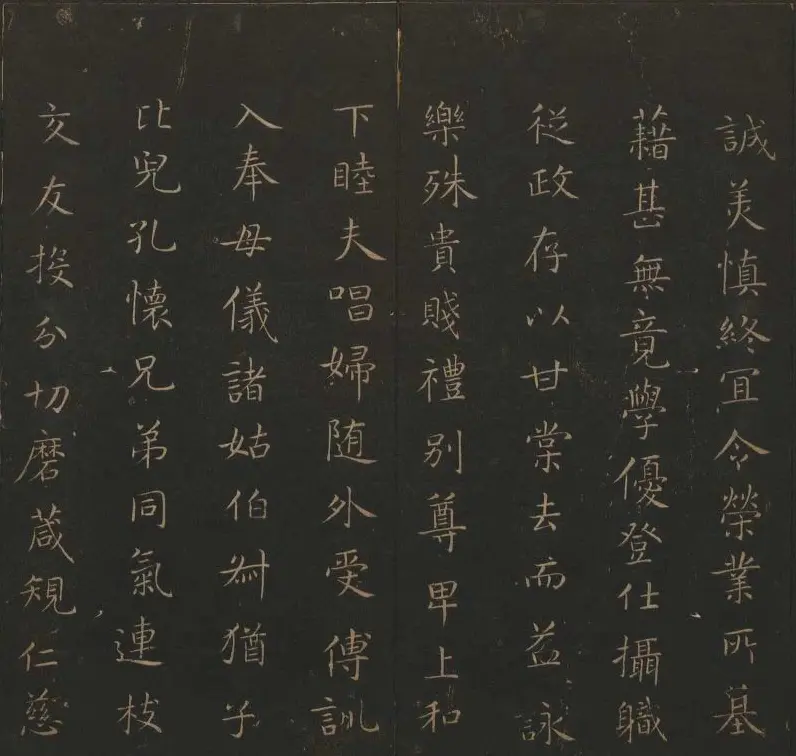 誠美慎終冝令榮業所基
藉甚無竟學優登仕攝職
從政存以甘棠去而益詠
樂殊貴賤禮別尊卑上和
下睦夫唱婦随外受傅訓
入奉母儀諸姑伯叔猶子
比兒孔懷兄弟同氣連枝
交友投分切磨葴規仁慈